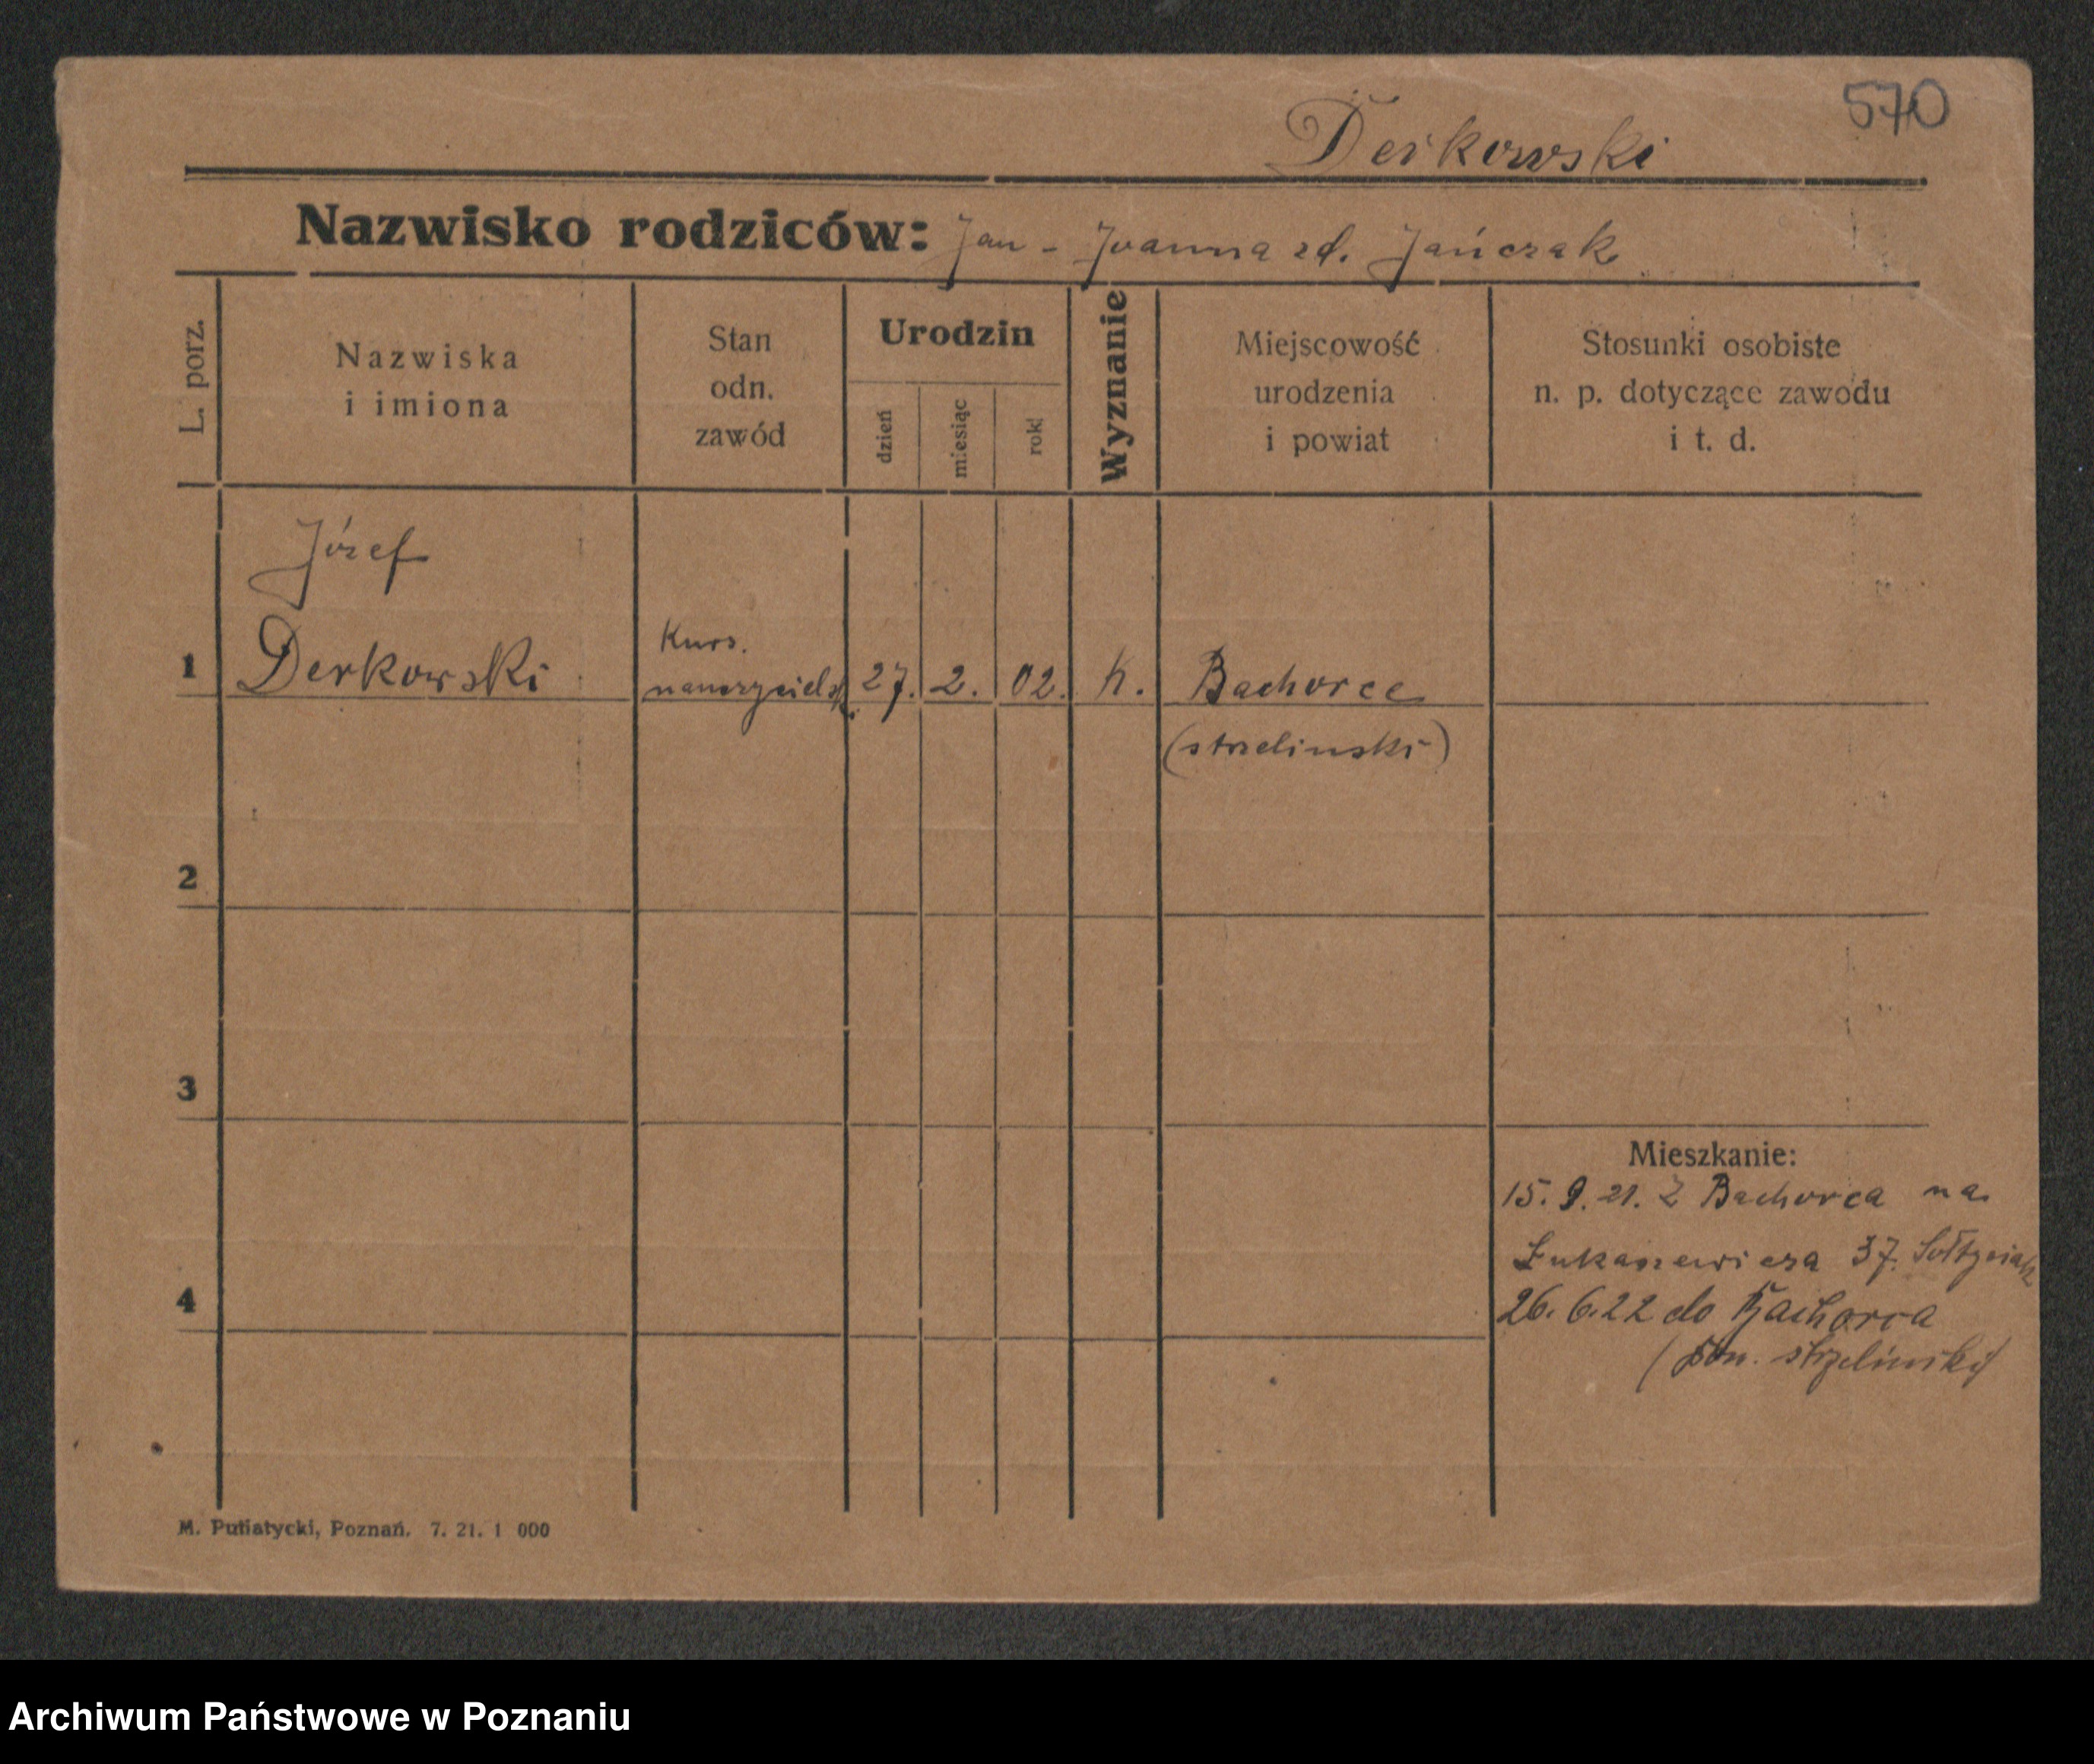 570
Derkowski
Nazwisko rodziców: Jan - Joanna zd. Jańczak
L. porz.
Nazwiska
i imiona
Stan
odn.
zawód
Urodzin
dzień
miesiąc
rok
Wyznanie
Miejscowość
urodzenia
i powiat
Stosunki osobiste
n. p. dotyczące zawodu
i t. d.
Józef
1 Derkowski
Kurs.
nauczycielsk.
27. 2. 02. k. Bachorce
(strzelinski)
2
3
4
Mieszkanie:
15. 9. 21. z Bachorca na
Łukaszewicza 37. Sołtysiak
26. 6. 22 do Bachorca
(pow. strzelinski)
M. Putiatycki, Poznań. 7. 21. 1 000
Archiwum Państwowe w Poznaniu